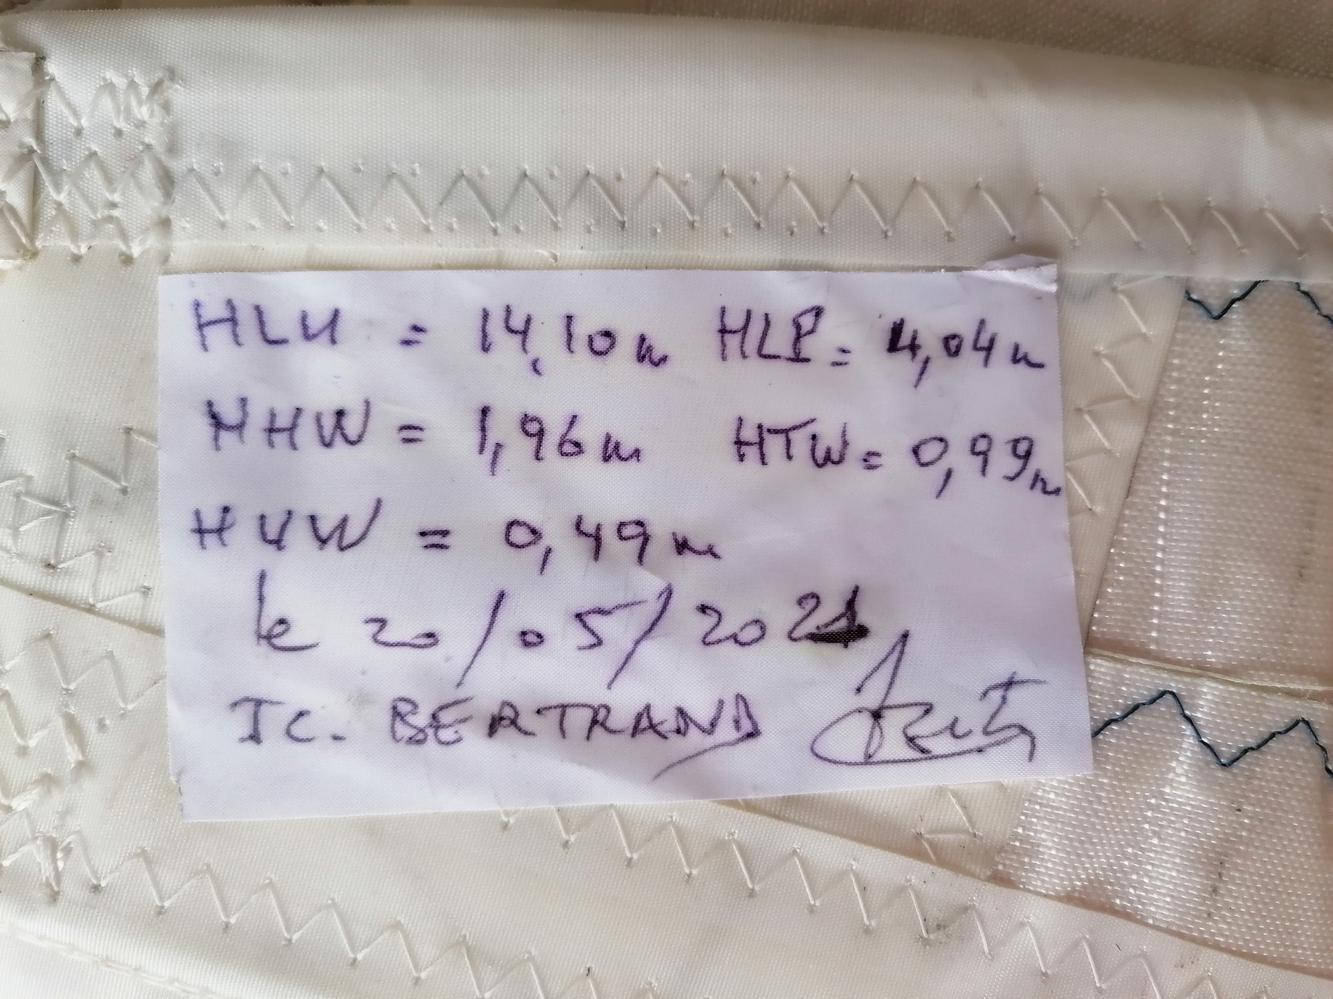 HLU = 14,10 m HLP = 4,04 m
HHW = 1,96 m HTW = 0,99 m
HUW = 0,49 m
le 20/05/2021
JC. BERTRAND